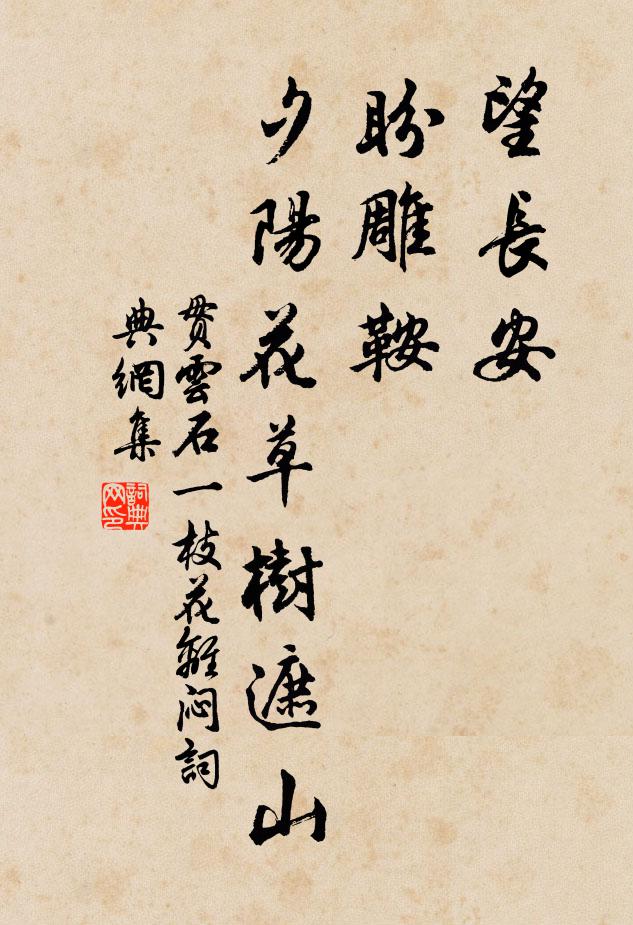 望長安
盼雕鞍
夕陽花草樹遮山
貫雲石一枝花離悶詞
典網集
詞典
网印